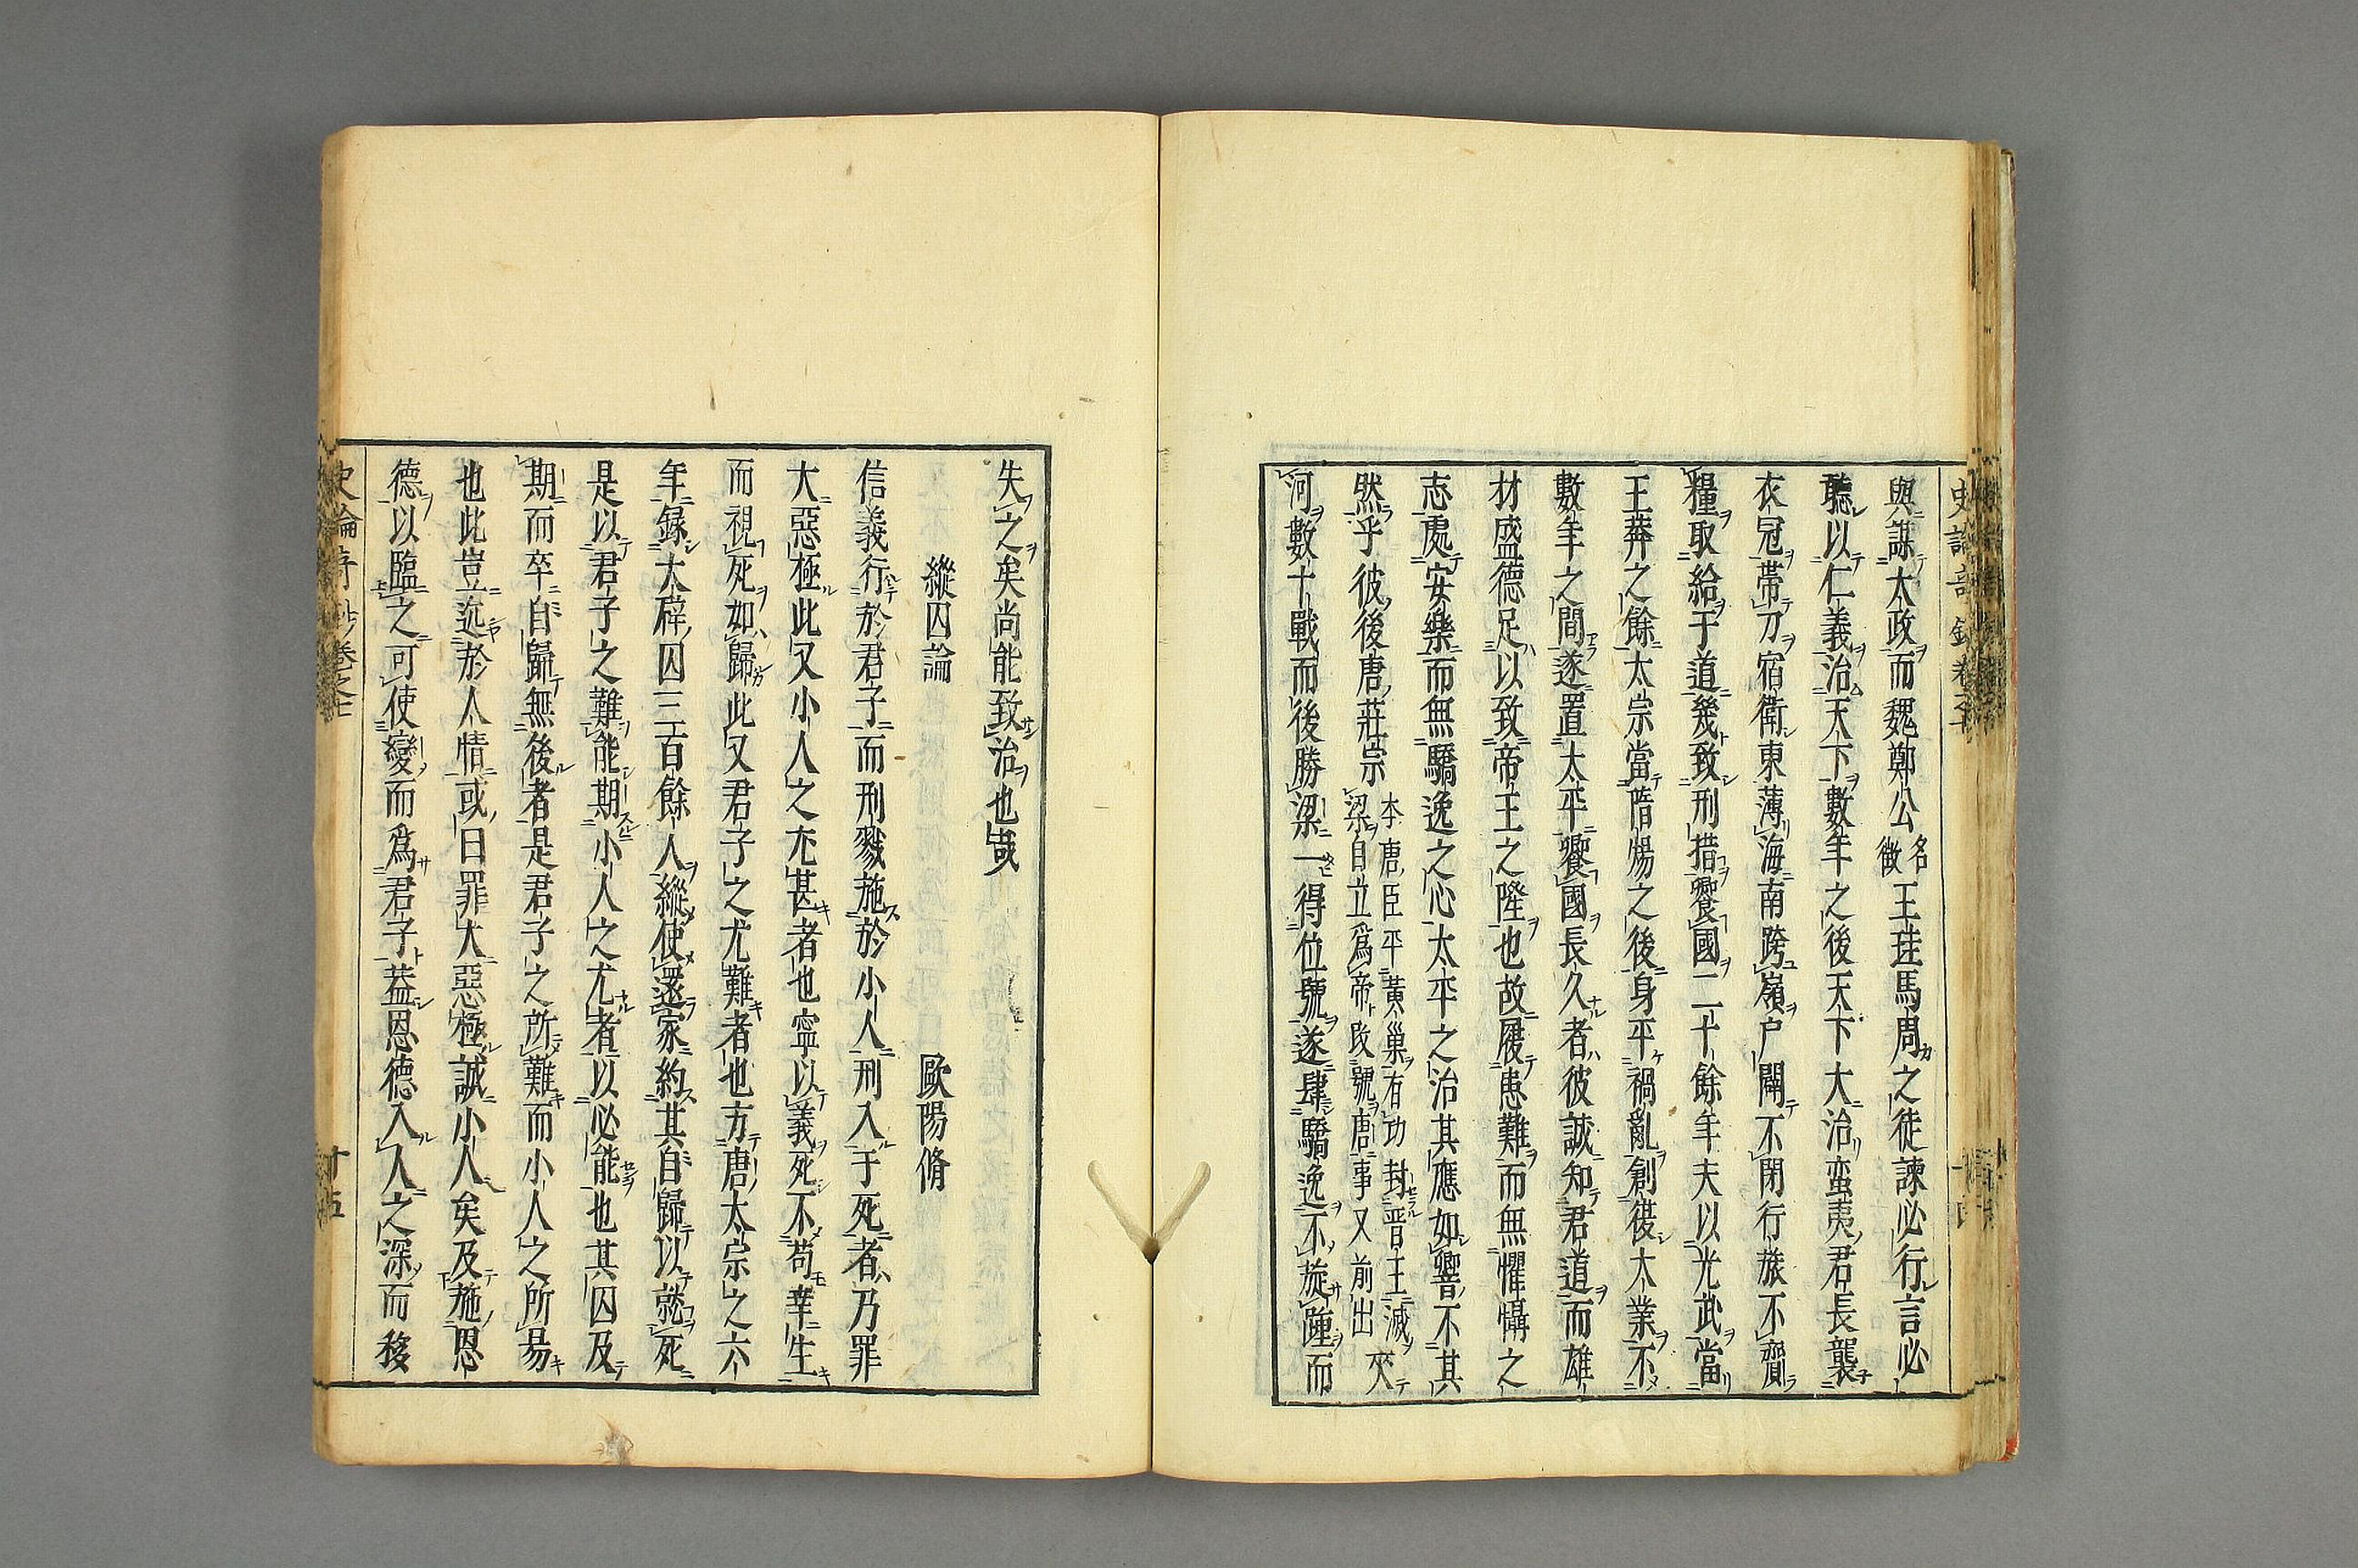 與謀太政而魏鄭公名徵王珪馬周之徒諫必行言必
聽以仁義治天下數年之後天下大治蛮夷君長襲
衣冠帶刀宿衛東薄海南跨嶺户闢不閉行旅不齎
糧取給于道幾致刑措饗國二十餘年夫以光武當
王莽之餘太宗當隋煬之後身平禍亂創復大業不
數年之間遂置太平饗國長久者彼誠知君道而雄
材盛德足以致帝王之隆也故履患難而無懼懾之
志處安樂而無驕逸之心太平之治其應如響不其
然乎彼後唐莊宗本唐臣平黃巢有功封晋王滅夾梁自立爲帝改號唐事又前出
河數十戰而後勝梁一得位號遂肆驕逸不旋踵而
失之矣尚能致治也哉
縱囚論 歐陽脩
信義行於君子而刑戮施於小人刑入于死者乃罪
大惡極此又小人之尤甚者也寧以義死不苟幸生
而視死如歸此又君子之尤難者也方唐太宗之六
年録大辟囚三百餘人縱使還家約其自歸以就死
是以君子之難能期小人之尤者以必能也其囚及
期而卒自歸無後者是君子之所難而小人之所易
也此豈近於人情或曰罪大惡極誠小人矣及施恩
德以臨之可使變而爲君子葢恩德入人之深而移
十五